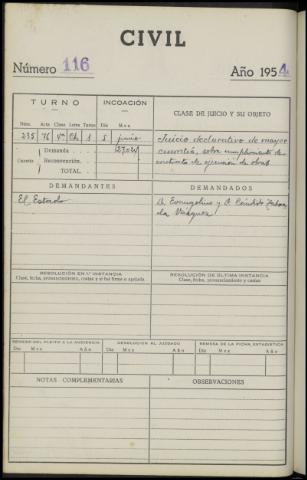 CIVIL
Número 116
Año 1954
TURNO
INCOACIÓN
CLASE DE JUICIO Y SU OBJETO
Núm. Acta Clase Letra Turno Día Mes
235 76 4ª 1 5 junio
Juicio declarativo de mayor
cuantía, sobre cumplimiento de
contrato de ejecución de obras
Cuantía
Demanda
Reconvención
TOTAL
DEMANDANTES
DEMANDADOS
El Estado
D. Evangelino y D. Cándido
da Vázquez
RESOLUCIÓN EN 1.ª INSTANCIA
Clase, fecha, pronunciamiento, costas y si fué firme o apelada
RESOLUCIÓN DE ÚLTIMA INSTANCIA
Clase, fecha, pronunciamiento y costas
REMISIÓN DEL PLEITO A LA AUDIENCIA
DEVOLUCIÓN AL JUZGADO
REMESA DE LA FICHA ESTADÍSTICA
Día Mes Año Día Mes Año Día Mes Año
NOTAS COMPLEMENTARIAS
OBSERVACIONES